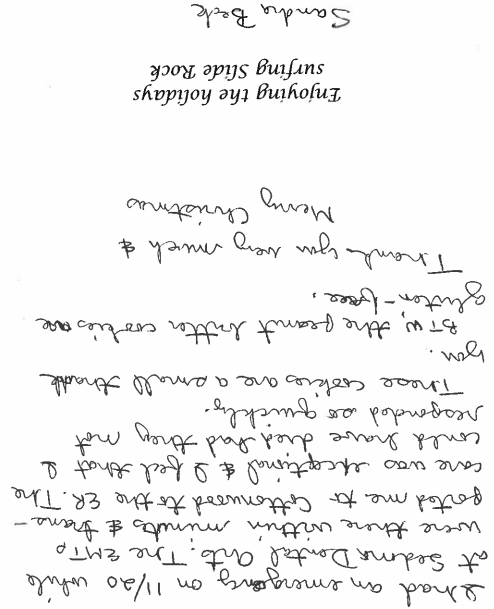 I had an emergency on 11/20 while
at Sedona Dental Arts. The EMTs
were there within minutes & trans-
ported me to Cottonwood to the ER. The
care was exceptional & I feel that I
could have died had they not
responded so quickly.
These cookies are a small thank
you.
BTW, the peanut butter cookies are
gluten-free.
Thank you very much &
Merry Christmas
Enjoying the holidays
surfing Slide Rock
Sandra Beck